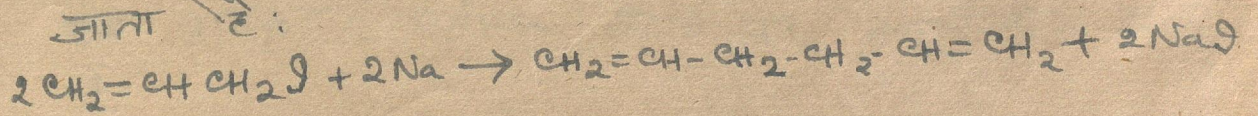 जाता है:
2CH₂=CH CH₂I + 2Na → CH₂=CH-CH₂-CH₂-CH=CH₂ + 2NaI